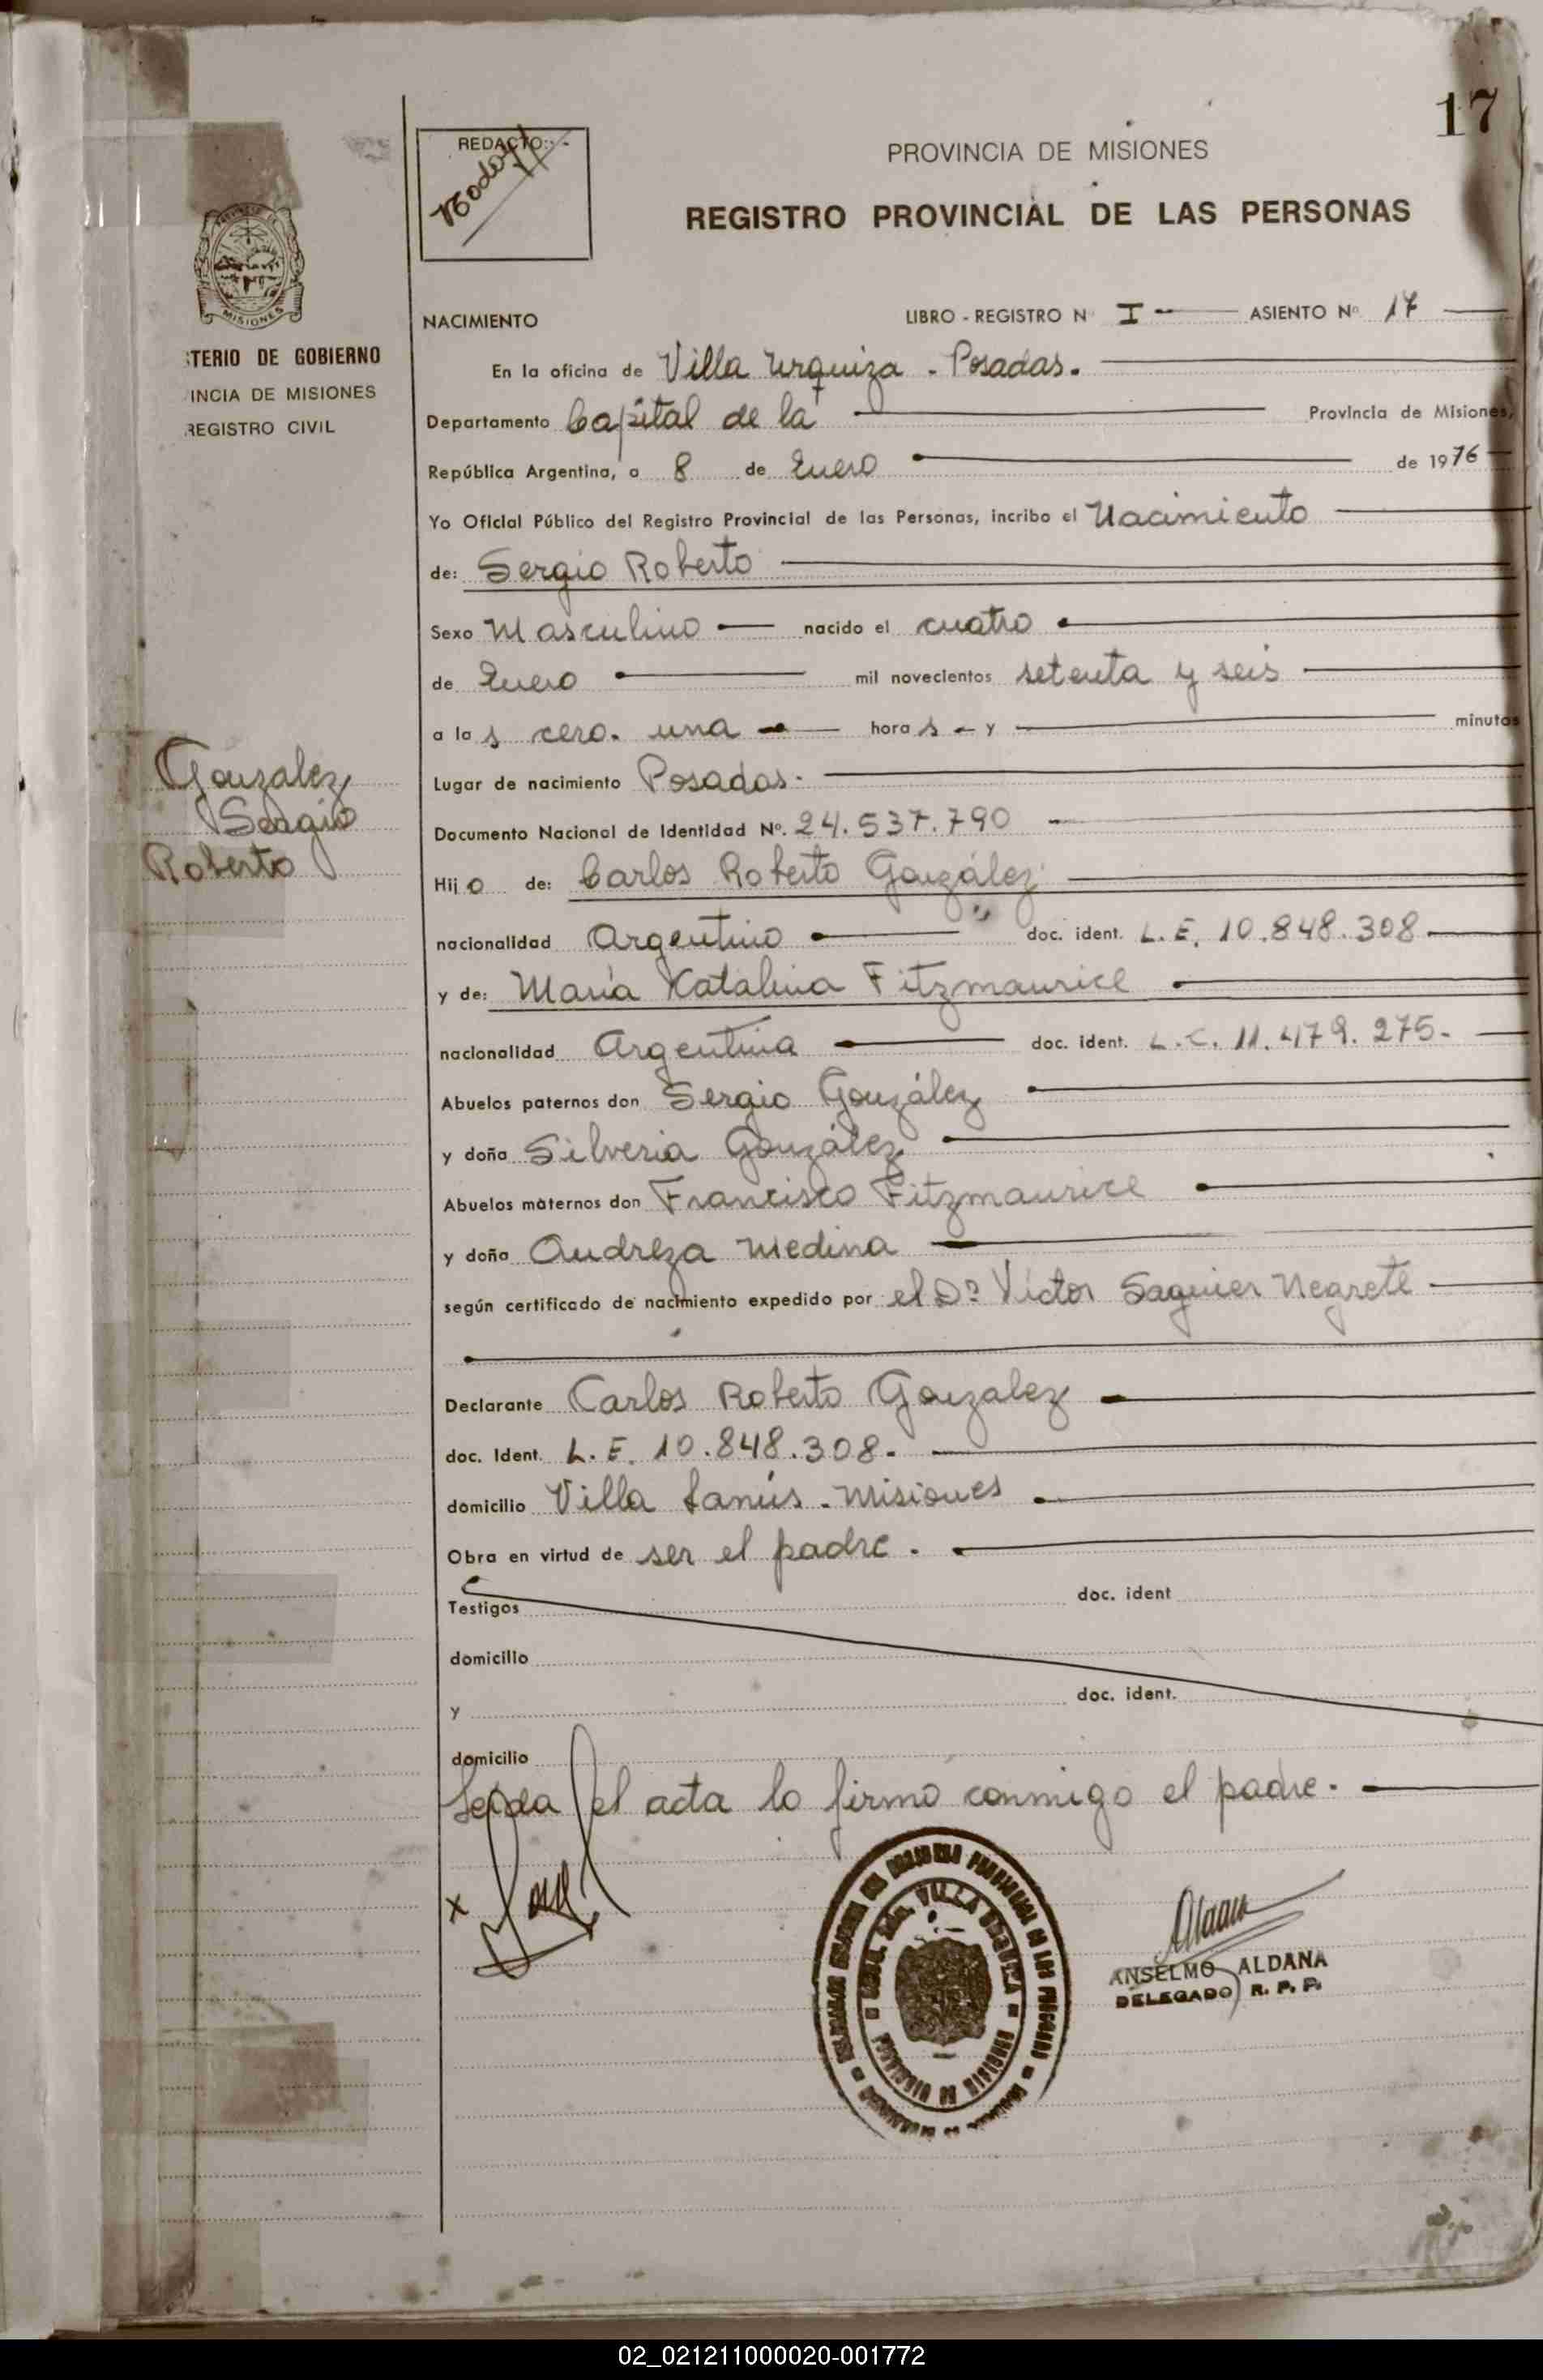 17
REDACTO:
PROVINCIA DE MISIONES
REGISTRO PROVINCIAL DE LAS PERSONAS
MISIONES
STERIO DE GOBIERNO
INCIA DE MISIONES
REGISTRO CIVIL
NACIMIENTO LIBRO - REGISTRO Nº I ASIENTO Nº 17
En la oficina de Villa Urquiza - Posadas.
Departamento Capital de la Provincia de Misiones,
República Argentina, a 8 de Enero de 1976
Yo Oficial Público del Registro Provincial de las Personas, incribo el Nacimiento
de: Sergio Roberto
Sexo Masculino nacido el cuatro
de Enero mil novecientos setenta y seis
a las cero. una horas - y minutos
Lugar de nacimiento Posadas.
Documento Nacional de Identidad Nº. 24.537.790
Hijo de: Carlos Roberto González
nacionalidad Argentino doc. ident. L.E. 10.848.308
y de: María Katalina Fitzmaurice
nacionalidad Argentina doc. ident. L.C. 11.479.275.
Abuelos paternos don Sergio González
y doña Silveria González
Abuelos maternos don Francisco Fitzmaurice
y doña Andreza Medina
según certificado de nacimiento expedido por el Dr Víctor Saguier Negrete
Declarante Carlos Roberto Gonzalez
doc. Ident. L.E. 10.848.308.
domicilio Villa Lanús - Misiones
Obra en virtud de ser el padre.
Testigos doc. ident
domicilio
y doc. ident.
domicilio
Leida el acta lo firmó conmigo el padre.
Gonzalez
Sergio
Roberto
x
VILLA URQUIZA
ANSELMO ALDANA
DELEGADO R. P. P.
02_021211000020-001772